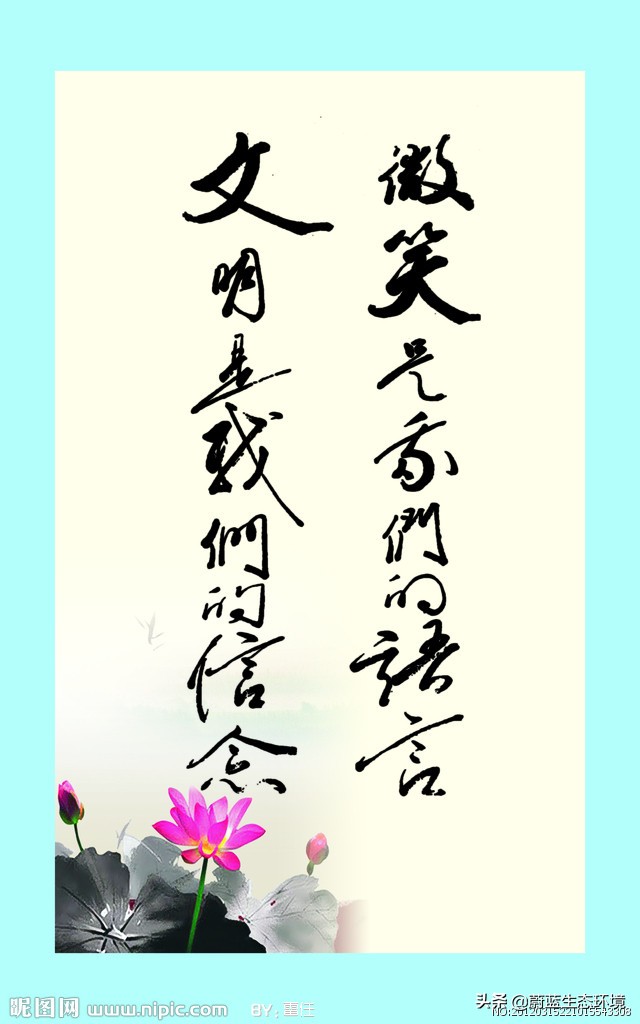 微笑是我們的語言
文明是我們的信念
昵图网 www.nipic.com BY:董任
头条 @蔚蓝生态环境
NO:20120315221015543308